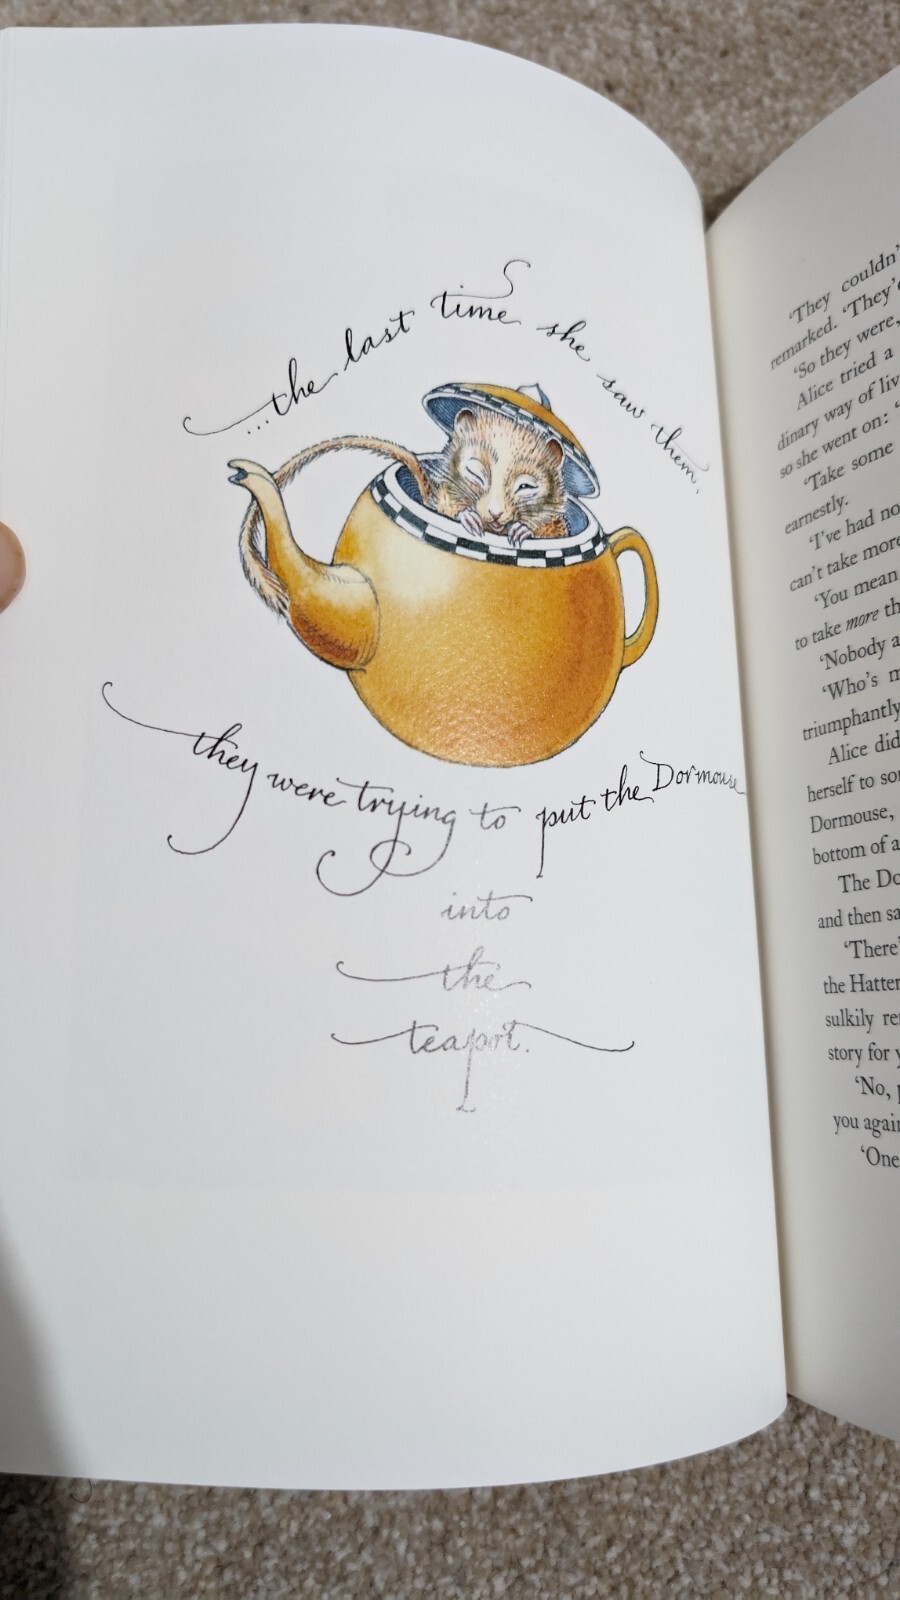 ...the last time she saw them,
they were trying to put the Dormouse
into
the
teapot.
'They couldn'
remarked. 'They'
'So they were,
Alice tried a
dinary way of liv
so she went on: '
'Take some
earnestly.
'I've had no
can't take more
'You mean
to take more th
'Nobody a
'Who's m
triumphantly
Alice did
herself to so
Dormouse,
bottom of a
The Do
and then sa
'There'
the Hatter
sulkily re
story for y
'No, p
you again
'One